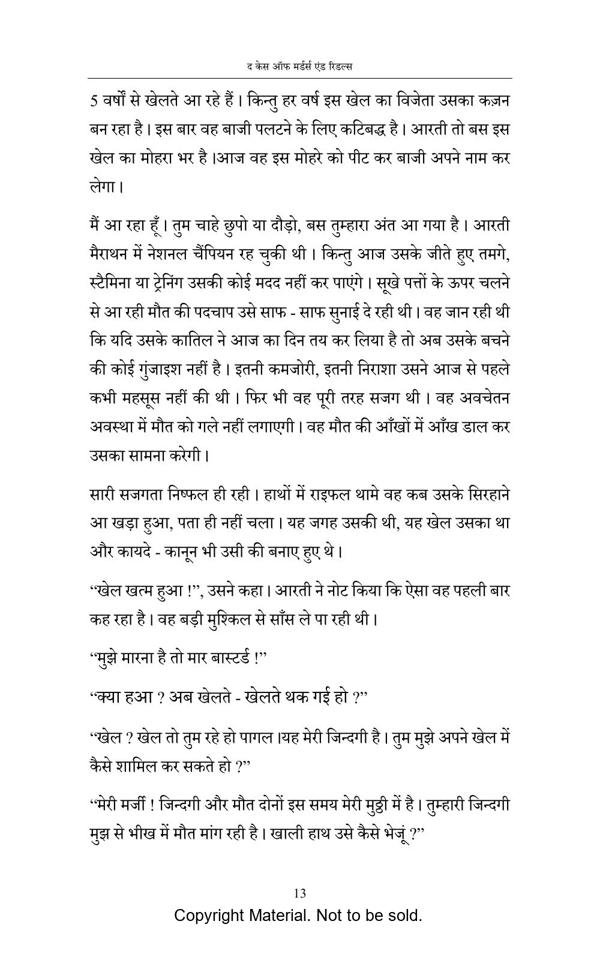 द केस ऑफ मर्डर्स एंड रिडल्स
5 वर्षों से खेलते आ रहे हैं । किन्तु हर वर्ष इस खेल का विजेता उसका कज़न
बन रहा है । इस बार वह बाजी पलटने के लिए कटिबद्ध है । आरती तो बस इस
खेल का मोहरा भर है ।आज वह इस मोहरे को पीट कर बाजी अपने नाम कर
लेगा ।
मैं आ रहा हूँ । तुम चाहे छुपो या दौड़ो, बस तुम्हारा अंत आ गया है । आरती
मैराथन में नेशनल चैंपियन रह चुकी थी । किन्तु आज उसके जीते हुए तमगे,
स्टैमिना या ट्रेनिंग उसकी कोई मदद नहीं कर पाएंगे । सूखे पत्तों के ऊपर चलने
से आ रही मौत की पदचाप उसे साफ - साफ सुनाई दे रही थी । वह जान रही थी
कि यदि उसके कातिल ने आज का दिन तय कर लिया है तो अब उसके बचने
की कोई गुंजाइश नहीं है । इतनी कमजोरी, इतनी निराशा उसने आज से पहले
कभी महसूस नहीं की थी । फिर भी वह पूरी तरह सजग थी । वह अवचेतन
अवस्था में मौत को गले नहीं लगाएगी । वह मौत की आँखों में आँख डाल कर
उसका सामना करेगी ।
सारी सजगता निष्फल ही रही । हाथों में राइफल थामे वह कब उसके सिरहाने
आ खड़ा हुआ, पता ही नहीं चला । यह जगह उसकी थी, यह खेल उसका था
और कायदे - कानून भी उसी की बनाए हुए थे ।
“खेल खत्म हुआ !”, उसने कहा । आरती ने नोट किया कि ऐसा वह पहली बार
कह रहा है । वह बड़ी मुश्किल से साँस ले पा रही थी ।
“मुझे मारना है तो मार बास्टर्ड !”
“क्या हआ ? अब खेलते - खेलते थक गई हो ?”
“खेल ? खेल तो तुम रहे हो पागल ।यह मेरी जिन्दगी है । तुम मुझे अपने खेल में
कैसे शामिल कर सकते हो ?”
“मेरी मर्जी ! जिन्दगी और मौत दोनों इस समय मेरी मुठ्ठी में है । तुम्हारी जिन्दगी
मुझ से भीख में मौत मांग रही है । खाली हाथ उसे कैसे भेजूं ?”
13
Copyright Material. Not to be sold.